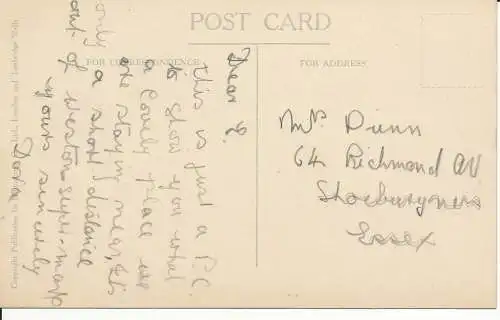 POST CARD
FOR CORRESPONDENCE
FOR ADDRESS
Dear E.
This is just a P.C.
to show you what
a lovely place we
are staying near, its
only a short distance
out of Weston-super-mare
yours sincerely
Dora
Mrs Dunn
64 Richmond AV
Shoeburyness
Essex
Copyright Publication
Ltd., London and Tunbridge Wells